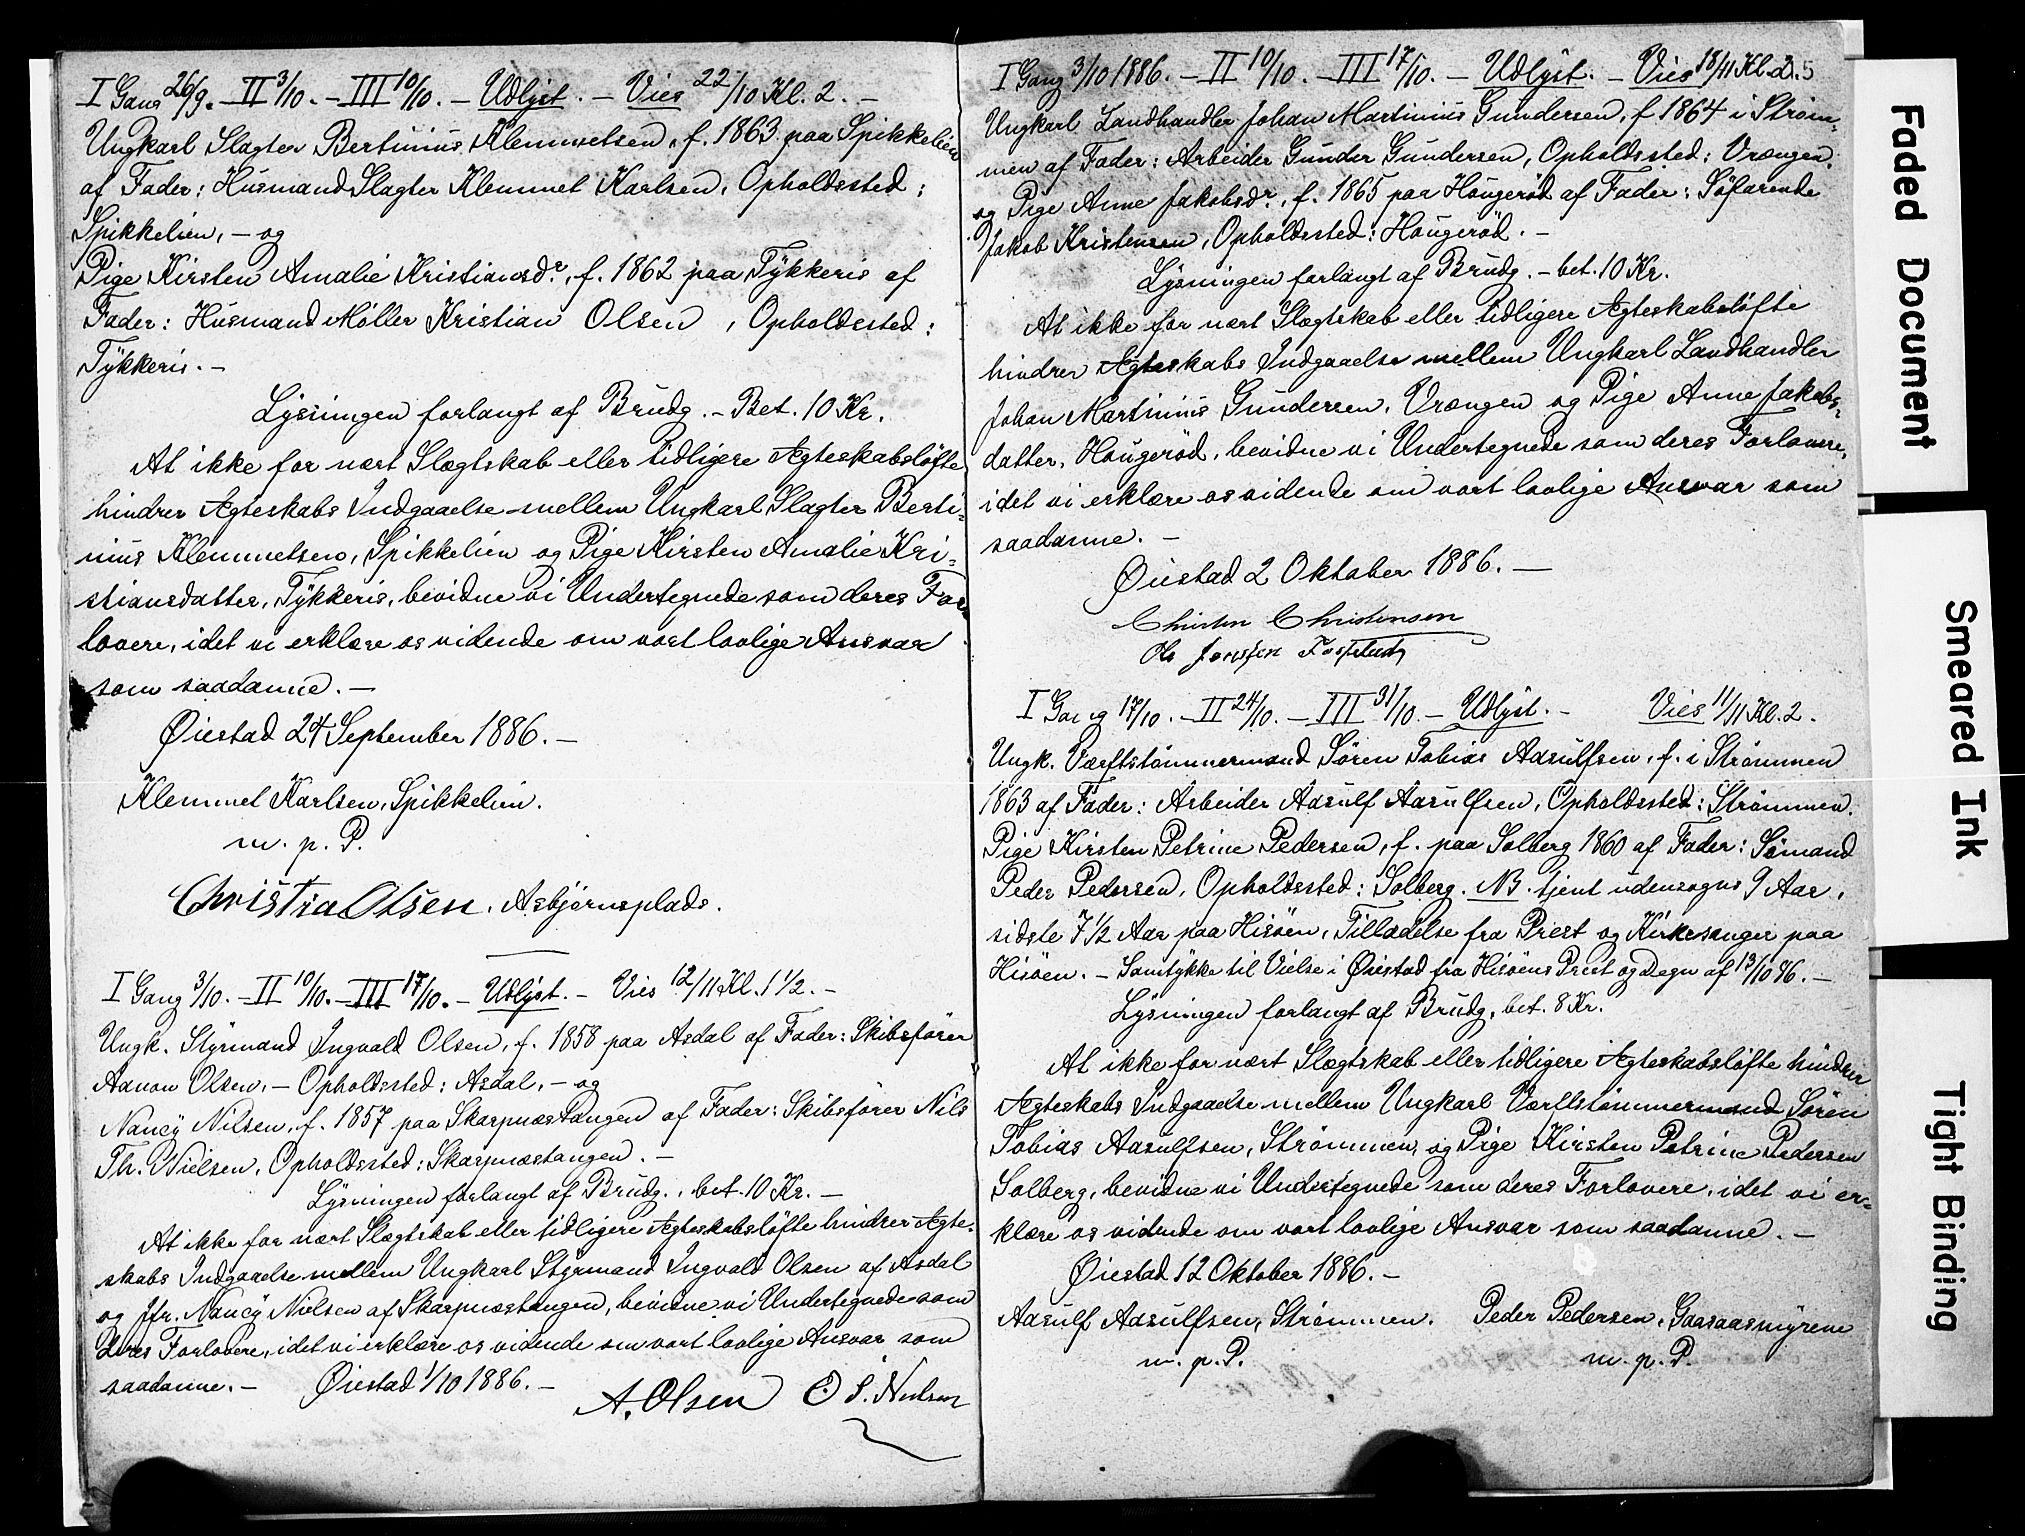 I Gang 26/9. – II 3/10. – III 10/10. – Udlyst. – Vies 22/10 Kl. 2. –
Ungkarl Slagter Bertinius Klemmetsen, f. 1863 paa Spikkelien
af Fader: Husmand Slagter Klemmet Karlsen, Opholdssted:
Spikkelien, – og
Pige Kirsten Amalie Kristiansdr, f. 1862 paa Tykkeris af
Fader: Husmand Møller Kristian Olsen, Opholdssted:
Tykkeris. –
Lysningen forlangt af Brudg. – Bet. 10 Kr.
At ikke for nært Slægtskab eller tidligere Ægteskabsløfte
hindrer Ægteskabs Indgaaelse mellem Ungkarl Slagter Berti-
nius Klemmetsen, Spikkelien og Pige Kirsten Amalie Kri-
stiansdatter, Tykkeris, bevidne vi Undertegnede som deres For-
lovere, idet vi erklære os vidende om vort lovlige Ansvar
som saadanne. –
Øiestad 24 September 1886. –
Klemmet Karlsen, Spikkelien.
m. p. P.
Christia Olsen, Asbjørnsplads.
I Gang 3/10. – II 10/10. – III 17/10. – Udlyst. – Vies 12/11 Kl. 1 1/2. –
Ungk. Styrmand Ingvald Olsen, f. 1858 paa Asdal af Fader: Skibsfører
Aanon Olsen, – Opholdssted: Asdal, – og
Nancy Nilsen, f. 1857 paa Skarpnæstangen af Fader: Skibsfører Nils
Th. Nielsen, Opholdssted: Skarpnæstangen. –
Lysningen forlangt af Brudg., bet. 10 Kr. –
At ikke for nært Slægtskab eller tidligere Ægteskabsløfte hindrer Ægte-
skabs Indgaaelse mellem Ungkarl Styrmand Ingvald Olsen af Asdal
og Jfr. Nancy Nielsen af Skarpnæstangen, bevidne vi Undertegnede som
deres Forlovere, idet vi erklære os vidende om vort lovlige Ansvar som
saadanne. – Øiestad 1/10 1886. –
A. Olsen
I Gang 3/10 1886. – II 10/10. – III 17/10. – Udlyst. – Vies 18/11 Kl. 2. 5
Ungkarl Landhandler Johan Martinius Gundersen, f 1864 i Strøm-
men af Fader: Arbeider Gunder Gundersen, Opholdssted: Vrængen.
og Pige Anne Jakobsdr, f. 1865 paa Hougerød af Fader: Søfarende
Jakob Kristensen, Opholdssted: Hougerød. –
Lysningen forlangt af Brudg. – bet. 10 Kr.
At ikke for nært Slægtskab eller tidligere Ægteskabsløfte
hindrer Ægteskabs Indgaaelse mellem Ungkarl Landhandler
Johan Martinius Gundersen, Vrængen og Pige Anne Jakobs-
datter, Hougerød, bevidne vi Undertegnede som deres Forlovere,
idet vi erklære os vidende om vort lovlige Ansvar som
saadanne. –
Øiestad 2 Oktober 1886. –
Christen Christensen
I Gang 17/10. – II 24/10. – III 31/10. – Udlyst. – Vies 11/11 Kl. 2.
Ungk. Værftstømmermand Søren Tobias Aasulfsen, f. i Strømmen
1863 af Fader: Arbeider Aasulf Aasulfsen, Opholdssted: Strømmen.
Pige Kirsten Petrine Pedersen, f. paa Solberg 1860 af Fader: Sømand
Peder Pedersen, Opholdssted: Solberg. NB. tjent udensogns 9 Aar,
sidste 7 1/2 Aar paa Hisøen, Tilladelse fra Prest og Kirkesanger paa
Hisøen. – Samtykke til Vielse i Øiestad fra Hisøens Prest og Degn af 13/10 96. –
Lysningen forlangt af Brudg, bet. 8 Kr.
At ikke for nært Slægtskab eller tidligere Ægteskabsløfte hindrer
Ægteskabs Indgaaelse mellem Ungkarl Værftstømmermand Søren
Tobias Aasulfsen, Strømmen, og Pige Kirsten Petrine Pedersen
Solberg, bevidne vi Undertegnede som deres Forlovere, idet vi er-
klære os vidende om vort lovlige Ansvar som saadanne. –
Øiestad 12 Oktober 1886. –
Aasulf Aasulfsen, Strømmen. Peder Pedersen, Gaasaasmyrene
m. p. P. m. p. P.
Faded Document
Smeared Ink
Tight Binding